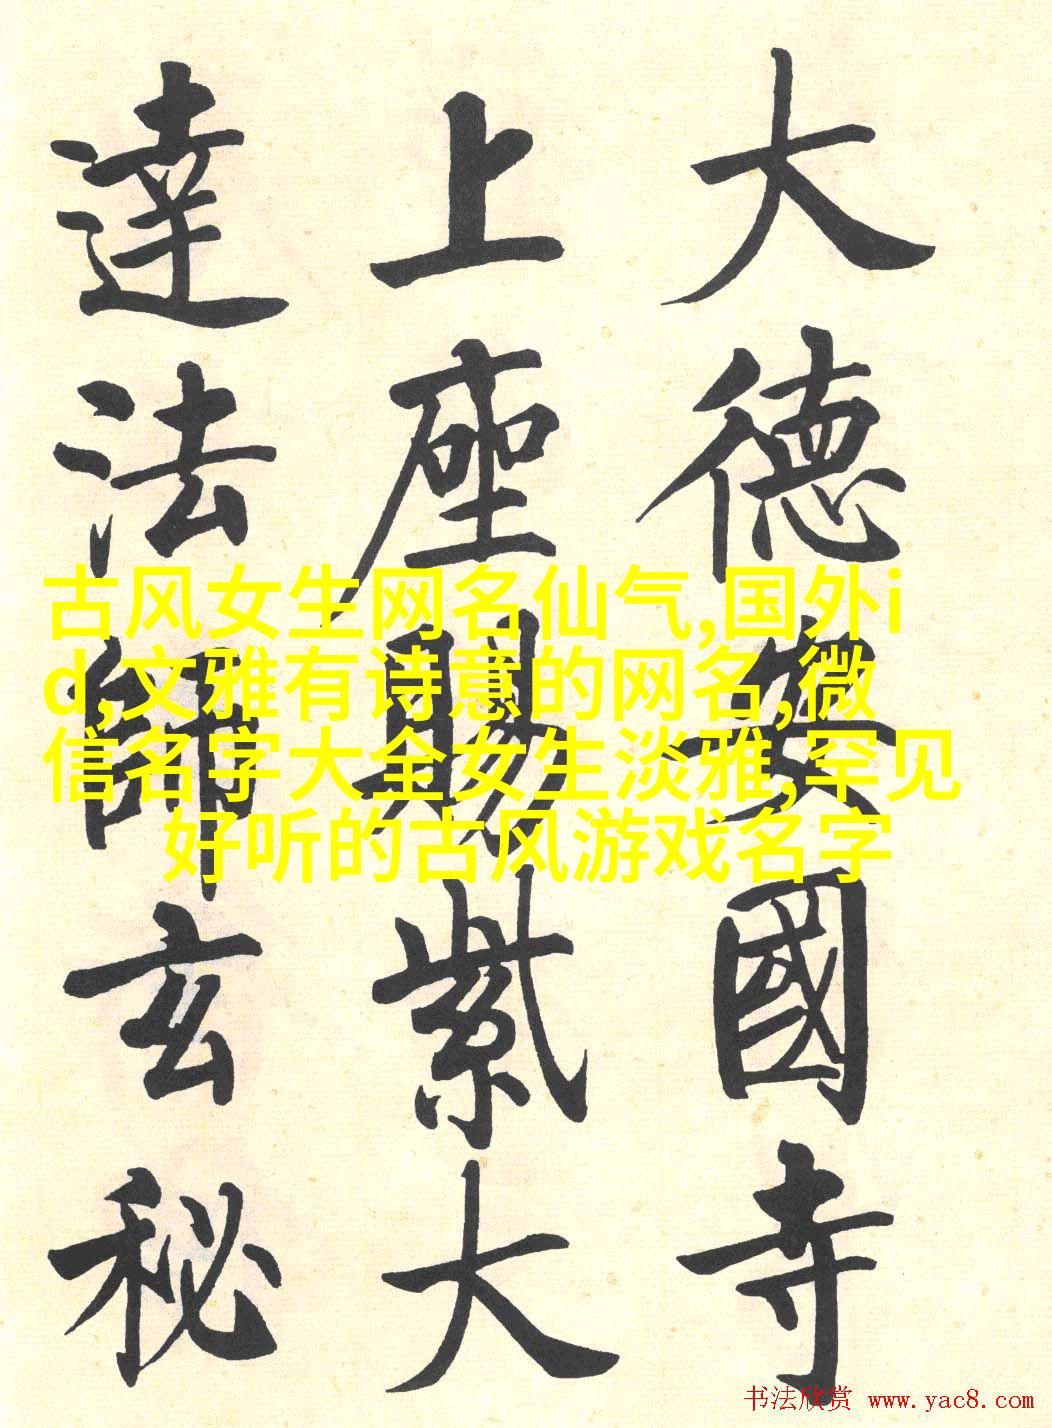 大德安國寺
上座賜紫大
達法師玄秘
古风女生网名仙气,国外i
d,文雅有诗意的网名,微
信名字大全女生淡雅,罕见
好听的古风游戏名字
书法欣赏 www.yac8.com